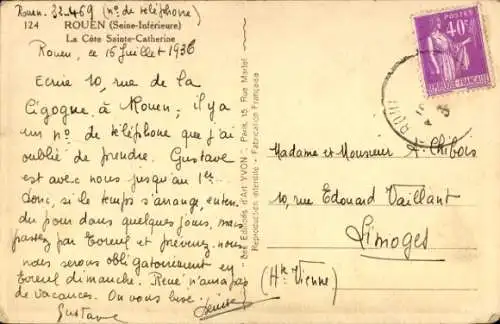 Rouen. 32.469 (nº de téléphone)
124 ROUEN (Seine-Inférieure)
La Côte Sainte-Catherine
Rouen, ce 15 Juillet 1936
Ecrire 10, rue de la
Cigogne à Rouen; il y a
un nº de téléphone que j'ai
oublié de prendre. Gustave
est avec nous jusqu'au 1er
donc, si le temps s'arrange, enten-
du pour dans quelques jours, mais
passez par Evreul et prévenez-nous
nous serons obligatoirement en
Evreul dimanche. René n'a pas
de vacances. On vous bise.
Gustave Denise
Les Editions d'Art YVON - Paris, 15, Rue Martel
Reproduction interdite - Fabrication Française
POSTES
40c
RÉPUBLIQUE FRANÇAISE
ROUEN
Madame et Monsieur A. Chibois
10, rue Edouard Vaillant
Limoges
(Hte Vienne)